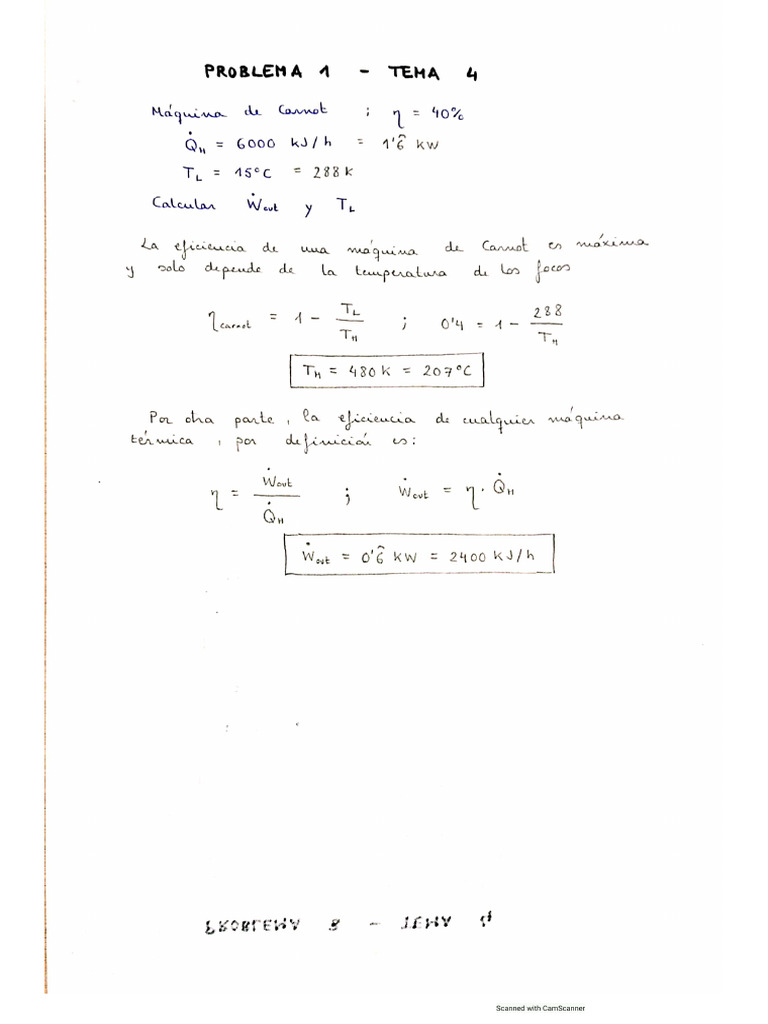 PROBLEMA 1 - TEMA 4
Máquina de Carnot ; η = 40%
Q̇_H = 6000 kJ/h = 1'6̂ kW
T_L = 15°C = 288 K
Calcular Ẇ_out y T_L
La eficiencia de una máquina de Carnot es máxima
y solo depende de la temperatura de los focos
η_carnot = 1 - T_L/T_H ; 0'4 = 1 - 288/T_H
T_H = 480 K = 207°C
Por otra parte, la eficiencia de cualquier máquina
térmica, por definición es:
η = Ẇ_out/Q̇_H ; Ẇ_out = η · Q̇_H
Ẇ_out = 0'6̂ kW = 2400 kJ/h
Scanned with CamScanner